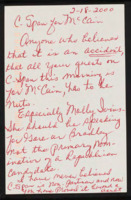 2-18-2000
C. Span for McCain
Anyone who believes
that it is an accident,
that all your guests on
C. Span this morning is
for McCain, has to be
Nuts.
Especially Molly Ivins.
She should be speaking
for Gore or Bradley
Not the Primary Nom-
ination of a Republican
Candidate.
I have never believed
C. Span is Non-Partisan and now